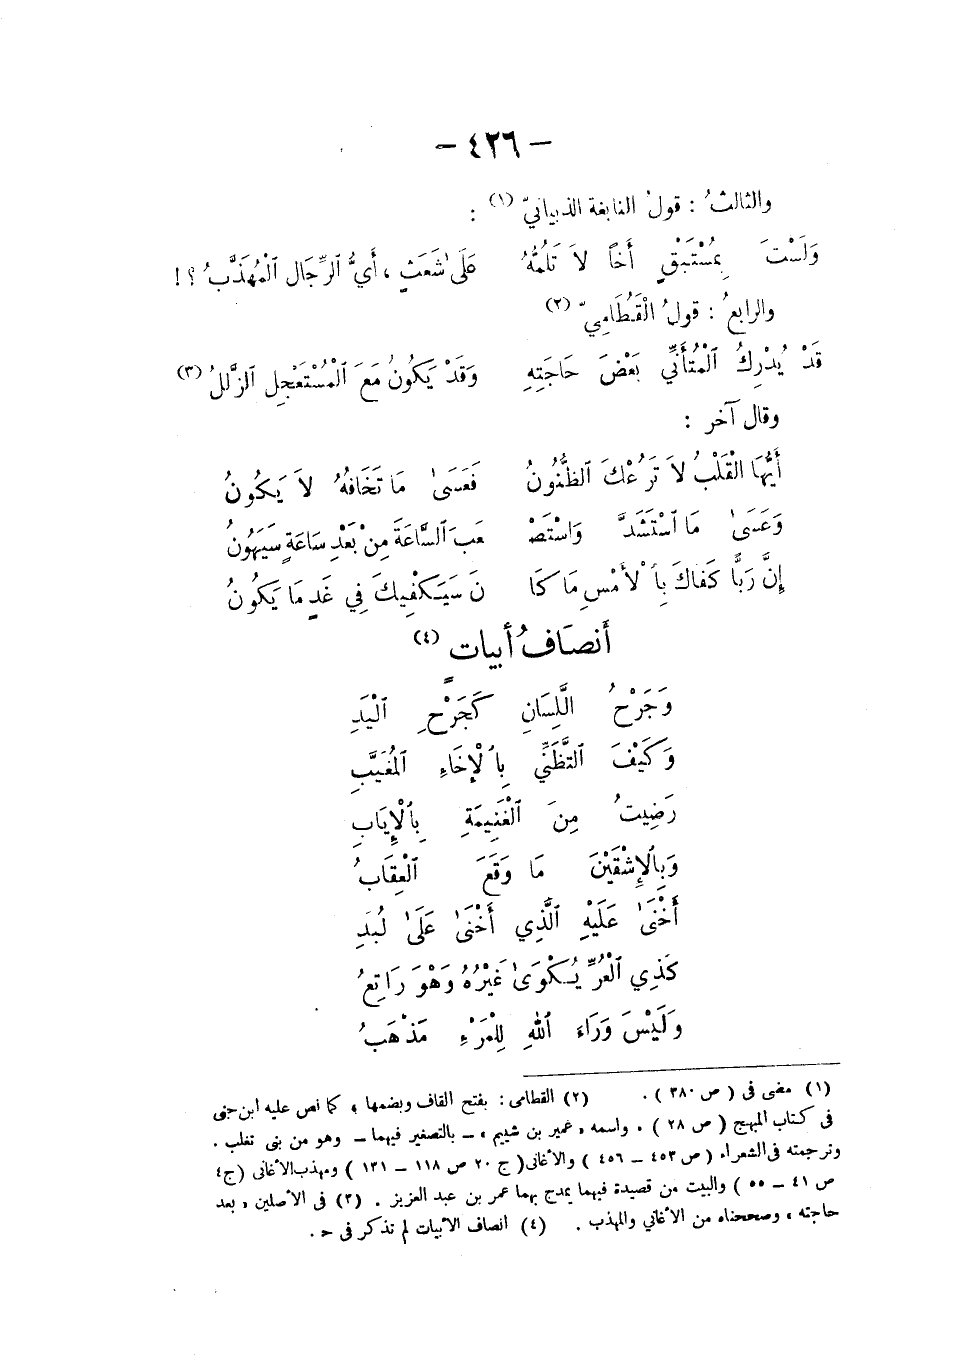 — ٤٢٦ —
والثالثُ : قولُ النابغة الذبيانيّ (١) :
وَلَسْتَ بِمُسْتَبْقٍ أَخًا لاَ تَلُمُّهُ عَلَى شَعَثٍ ، أَيُّ ٱلرِّجَالِ ٱلْمُهَذَّبُ ؟ !
والرابعُ : قولُ الْقُطَامِيّ (٢)
قَدْ يُدْرِكُ ٱلْمُتَأَنِّي بَعْضَ حَاجَتِهِ وَقَدْ يَكُونُ مَعَ ٱلْمُسْتَعْجِلِ ٱلزَّلَلُ (٣)
وقال آخر :
أَيُّهَا الْقَلْبُ لاَ تَرُعْكَ ٱلظُّنُونُ فَعَسَى مَا تَخَافُهُ لاَ يَكُونُ
وَعَسَى مَا ٱسْتَشَدَّ وَاسْتَصْ عَبَ ٱلسَّاعَةَ مِنْ بَعْدِ سَاعَةٍ سَيَهُونُ
إِنَّ رَبًّا كَفَاكَ بِٱلْأَمْسِ مَا كَا نَ سَيَكْفِيكَ فِي غَدٍ مَا يَكُونُ
أنصَافُ أبياتٍ (٤)
وَجَرْحُ اللِّسَانِ كَجَرْحِ ٱلْيَدِ
وَكَيْفَ ٱلتَّظَنِّي بِٱلْإِخَاءِ ٱلْمُغَيَّبِ
رَضِيتُ مِنَ ٱلْغَنِيمَةِ بِٱلْإِيَابِ
وَبِالإِشْقَيْنَ مَا وَقَعَ ٱلْعِقَابُ
أَخْنَى عَلَيْهِ ٱلَّذِي أَخْنَى عَلَى لُبَدِ
كَذِي ٱلْعُرِّ يُكْوَى غَيْرُهُ وَهْوَ رَاتِعُ
وَلَيْسَ وَرَاءَ ٱللهِ لِلْمَرْءِ مَذْهَبُ
(١) مضى فى ( ص ٣٨٠ ) . (٢) القطامى : بفتح القاف وبضمها ، كما نص عليه ابن جنى
فى كتاب المبهج ( ص ٢٨ ) . واسمه « عمير بن شييم » — بالتصغير فيهما — وهو من بنى تغلب .
وترجمته فى الشعراء ( ص ٤٥٣ — ٤٥٦ ) والأغانى ( ج ٢٠ ص ١١٨ — ١٣١ ) ومهذب الأغانى ( ج ٤
ص ٤١ — ٥٥ ) والبيت من قصيدة فيهما يمدح بهما عمر بن عبد العزيز . (٣) فى الأصلين « بعد
حاجته » وصححناه من الأغاني والمهذب . (٤) أنصاف الأبيات لم تذكر فى ح .